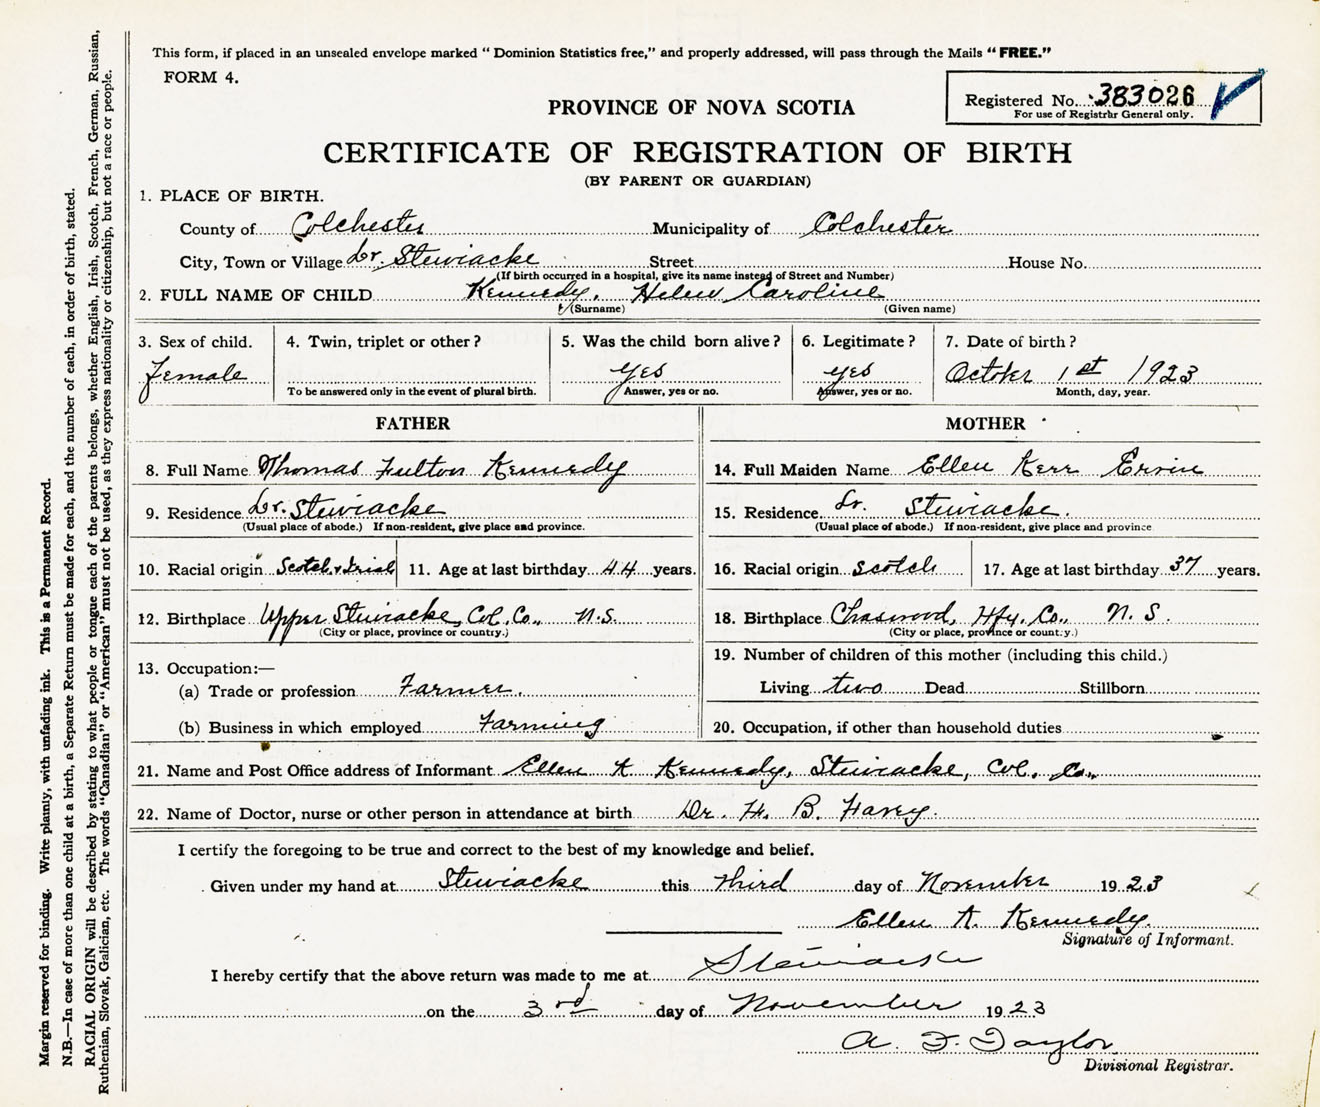 This form, if placed in an unsealed envelope marked "Dominion Statistics free," and properly addressed, will pass through the Mails "FREE."
FORM 4.
Registered No. 383026
For use of Registrar General only.
PROVINCE OF NOVA SCOTIA
CERTIFICATE OF REGISTRATION OF BIRTH
(BY PARENT OR GUARDIAN)
1. PLACE OF BIRTH.
County of Colchester Municipality of Colchester
City, Town or Village Lr. Stewiacke Street House No.
(If birth occurred in a hospital, give its name instead of Street and Number)
2. FULL NAME OF CHILD Kennedy, Helen Caroline
(Surname) (Given name)
3. Sex of child. 4. Twin, triplet or other? 5. Was the child born alive? 6. Legitimate? 7. Date of birth?
Female yes yes October 1st 1923
To be answered only in the event of plural birth. Answer, yes or no. Answer, yes or no. Month, day, year.
FATHER MOTHER
8. Full Name Thomas Fulton Kennedy 14. Full Maiden Name Ellen Kerr Ervin
9. Residence Lr. Stewiacke 15. Residence Lr. Stewiacke.
(Usual place of abode.) If non-resident, give place and province. (Usual place of abode.) If non-resident, give place and province
10. Racial origin Scotch & Irish 11. Age at last birthday 44 years. 16. Racial origin Scotch 17. Age at last birthday 37 years.
12. Birthplace Upper Stewiacke, Col. Co., N.S. 18. Birthplace Chaswood, Hfx. Co., N.S.
(City or place, province or country.) (City or place, province or country.)
13. Occupation:— 19. Number of children of this mother (including this child.)
(a) Trade or profession Farmer. Living two Dead Stillborn
(b) Business in which employed Farming 20. Occupation, if other than household duties
21. Name and Post Office address of Informant Ellen K Kennedy, Stewiacke, Col. Co.
22. Name of Doctor, nurse or other person in attendance at birth Dr. H. B. Havey.
I certify the foregoing to be true and correct to the best of my knowledge and belief.
Given under my hand at Stewiacke this third day of November 1923
Ellen K. Kennedy.
Signature of Informant.
I hereby certify that the above return was made to me at Stewiacke
on the 3rd day of November 1923
A. F. Taylor
Divisional Registrar.
Margin reserved for binding. Write plainly, with unfading ink. This is a Permanent Record.
N.B.—In case of more than one child at a birth, a Separate Return must be made for each, and the number of each, in order of birth, stated.
RACIAL ORIGIN will be described by stating to what people or tongue each of the parents belongs, whether English, Irish, Scotch, French, German, Russian,
Ruthenian, Slovak, Galician, etc. The words "Canadian" or "American" must not be used, as they express nationality or citizenship, but not a race or people.